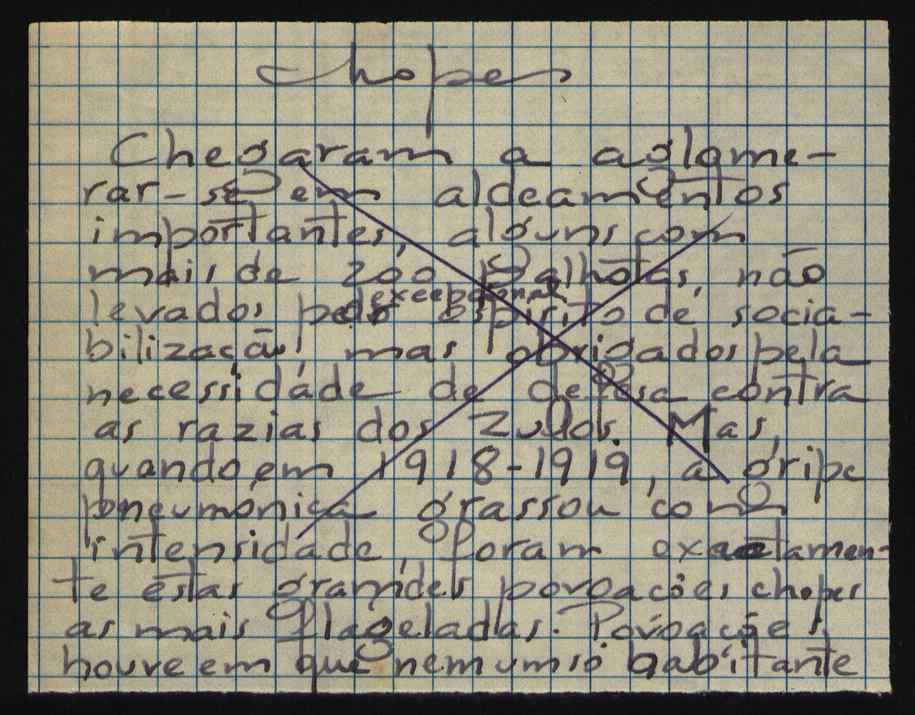 Chopes
Chegaram a aglome-
rar-se em aldeamentos
importantes, alguns com
mais de 200 palhotas, não
excepcional
levados pelo espírito de socia-
bilização, mas obrigados pela
necessidade de defesa contra
as razias dos Zulos. Mas,
quando, em 1918-1919, a gripe
pneumónica grassou com
intensidade, foram exactamen-
te estas grandes povoações chopes
as mais flageladas. Povoações
houve em que nem um só habitante